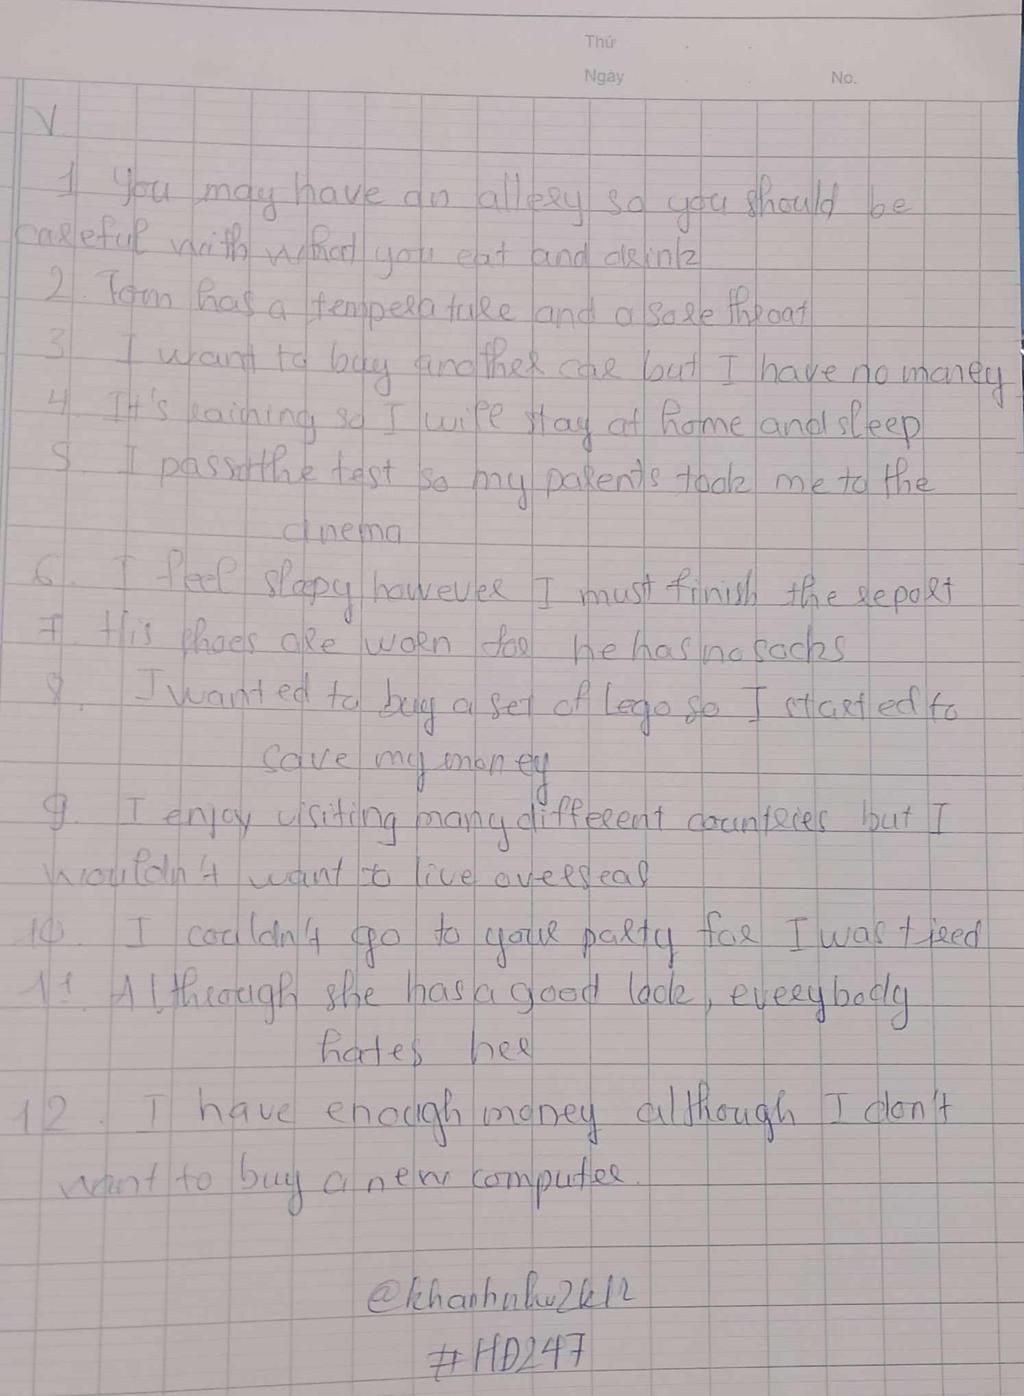 Thứ
Ngày No.
V
1 You may have an allery so you should be
careful with what you eat and drink
2. Tom has a temperature and a sore throat
3 I want to buy another car but I have no money
4. It's raining so I will stay at home and sleep
5. I pass the test so my parents took me to the
cinema
6. I feel sleepy however I must finish the report
7. His shoes are worn for he has no socks
8. I wanted to buy a set of Lego so I started to
save my money
9. I enjoy visiting many different countries but I
wouldn't want to live overseas
10. I couldn't go to your party for I was tired
11 Although she has a good look, everybody
hates her
12. I have enough money although I don't
want to buy a new computer.
@khanhnhu2k12
#HD247